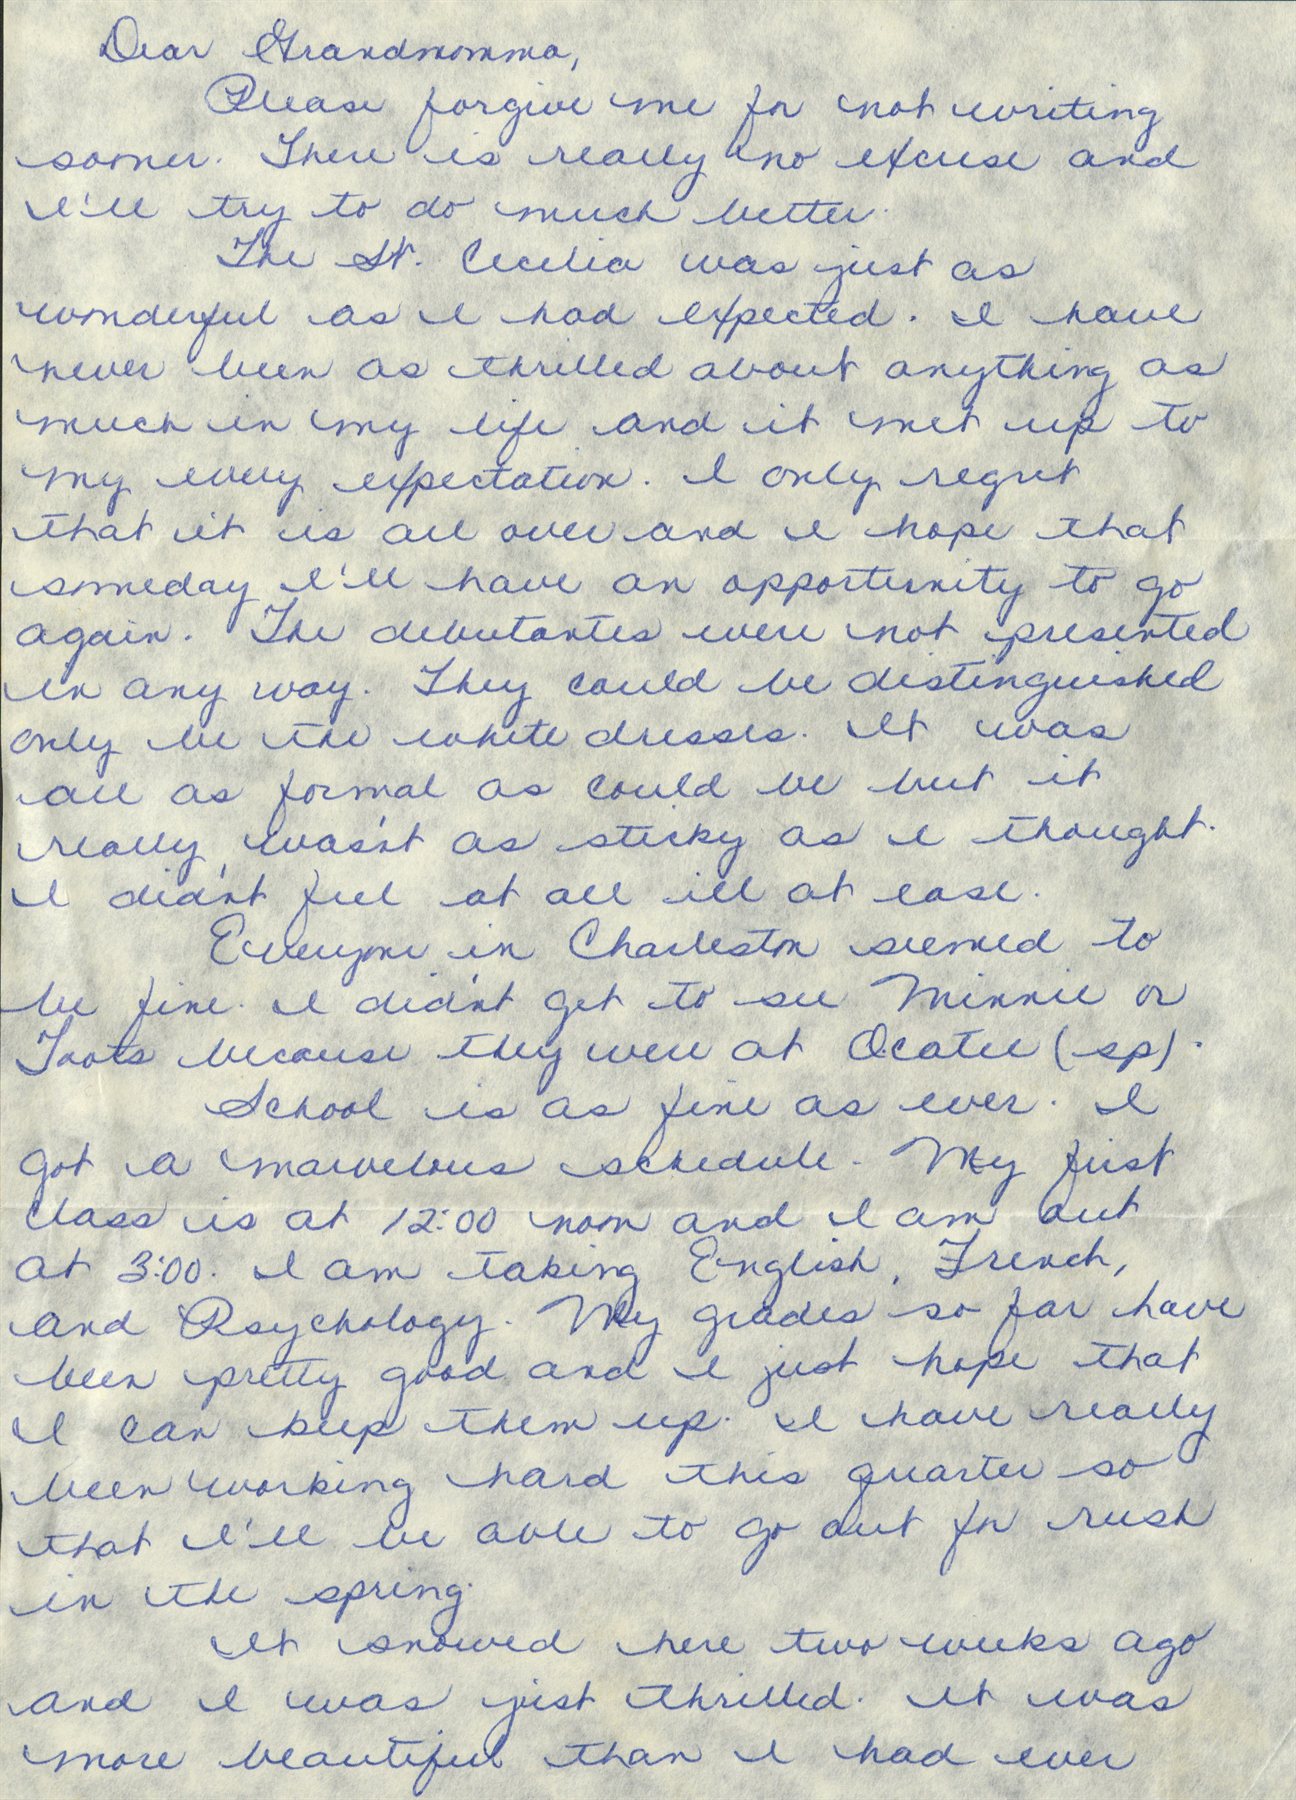 Dear Grandmomma,
Please forgive me for not writing
sooner. There is really no excuse and
I'll try to do much better.
The St. Cecilia was just as
wonderful as I had expected. I have
never been as thrilled about anything as
much in my life and it met up to
my every expectation. I only regret
that it is all over and I hope that
someday I'll have an opportunity to go
again. The debutantes were not presented
in any way. They could be distinguished
only be the white dresses. It was
all as formal as could be but it
really wasn't as sticky as I thought.
I didn't feel at all ill at ease.
Everyone in Charleston seemed to
be fine. I didn't get to see Minnie or
Toots because they were at Ocatee (sp).
School is as fine as ever. I
got a marvelous schedule. My first
class is at 12:00 noon and I am out
at 3:00. I am taking English, French,
and Psychology. My grades so far have
been pretty good and I just hope that
I can keep them up. I have really
been working hard this quarter so
that I'll be able to go out for rush
in the spring.
It snowed here two weeks ago
and I was just thrilled. It was
more beautiful than I had ever